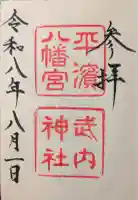 参拝
平濱
八幡宮
武内
神社
令和八年八月一日